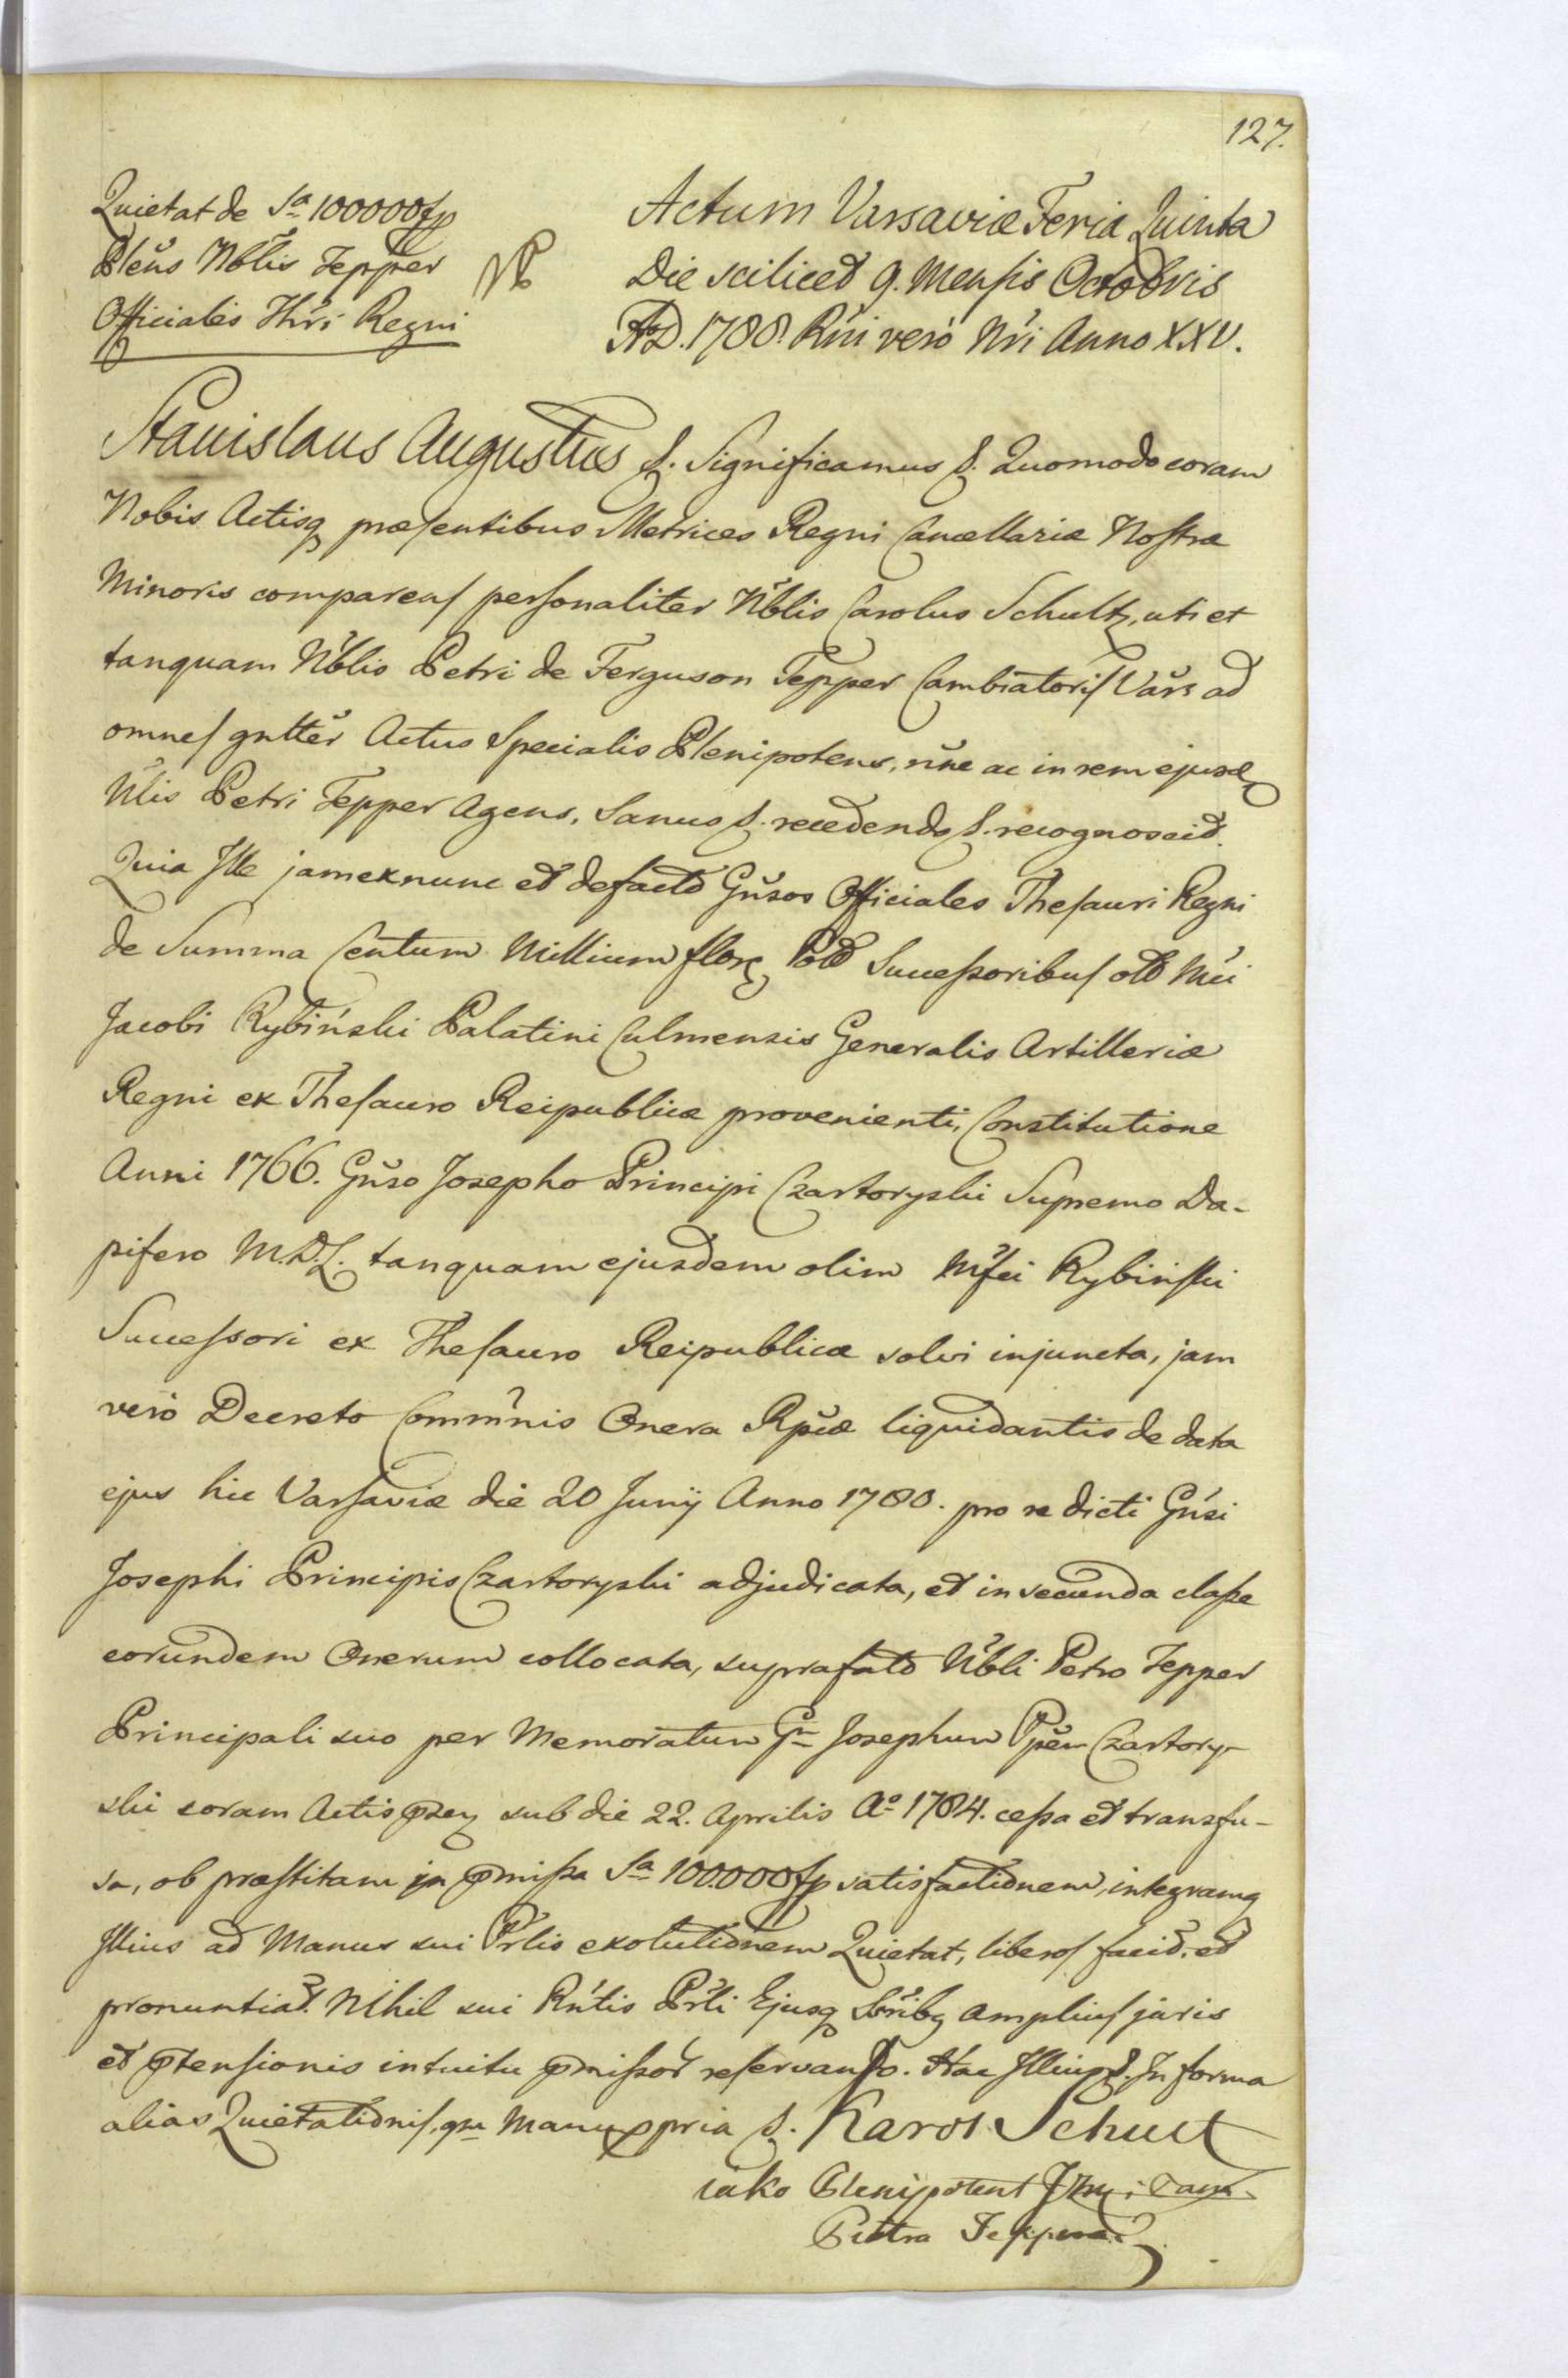 127.
Quietat de Sa 100000 fp
Plěns Nblis Tepper
Officiales Thri Regni
Nb
Actum Varsaviæ Feria Quinta
Die scilicet 9. Mensis Octobris
AD. 1788. Rni verò Nri Anno XXV.
Stanislaus Augustus &. Significamus &. Quomodo coram
Nobis Actisq præsentibus Metrices Regni Cancellariæ Nostræ
Minoris comparens personaliter Nblis Carolus Schultz, uti et
tanquam Nblis Petri de Ferguson Tepper Cambiatoris Vars ad
omnes gntter Actus Specialis Plenipotens, nne ac in rem ejusd
Nlis Petri Tepper Agens, Sanus &. recedendo &. recognoscit.
Quia Ille jam ex nunc et de facto Gnsos Officiales Thesauri Regni
de Summa Centum Millium flor Pol Successoribus ol Mci
Jacobi Rybiński Palatini Culmensis Generalis Artilleriæ
Regni ex Thesauro Reipublicæ provenienti, Constitutione
Anni 1766. Gnso Josepho Principi Czartoryski Supremo Da-
pifero M.D.L. tanquam ejusdem olim Mfci Rybiński
Successori ex Thesauro Reipublicæ solvi injuncta, jam
verò Decreto Commnis Onera Rpcæ liquidantis de data
ejus hic Varsaviæ die 20 Junij Anno 1780. pro re dicti Gnsi
Josephi Principis Czartoryski adjudicata, et in secunda classe
eorundem Onerum collocata, suprafato Nbli Petro Tepper
Principali suo per Memoratum Gm Josephum Ppem Czartory-
ski coram Actis psen sub die 22. Aprilis Ao 1784. cessa et transfu-
sa, ob præstitam in pmissa Sa 100.000 fp satisfactionem, integramq
Illius ad Manus sui Prlis exolutionem Quietat, liberos facit, et
pronuntiat. Nihil sui Rntis Prli Ejusq Sbribq amplius juris
et ptensionis intuitu pmissor reservando. Hac Illius &. In forma
alias Quietationis, qm Manu ppria &. Karol Schult
iako Plenipotent
Piotra Teppera